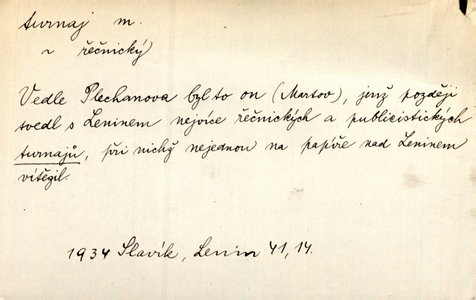 turnaj m.
~ řečnický
Vedle Plechanova byl to on (Martov), jenž později
svedl s Leninem nejvíce řečnických a publicistických
turnajů, při nichž nejednou na papíře nad Leninem
vítězil.
1934 Slavík, Lenin 41,14.